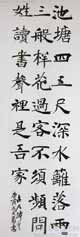 池塘四五尺深水籬落兩
三般樣花過客不須頻問
姓讀書聲裡是吾家